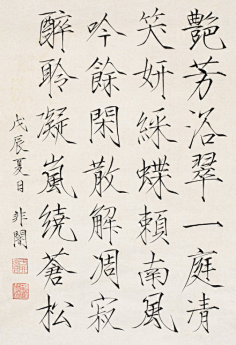 豔芳浴翠一庭清
笑妍綵蝶賴南風
吟餘閑散解凋寂
醉聆凝嵐繞蒼松
戊辰夏日 非闇